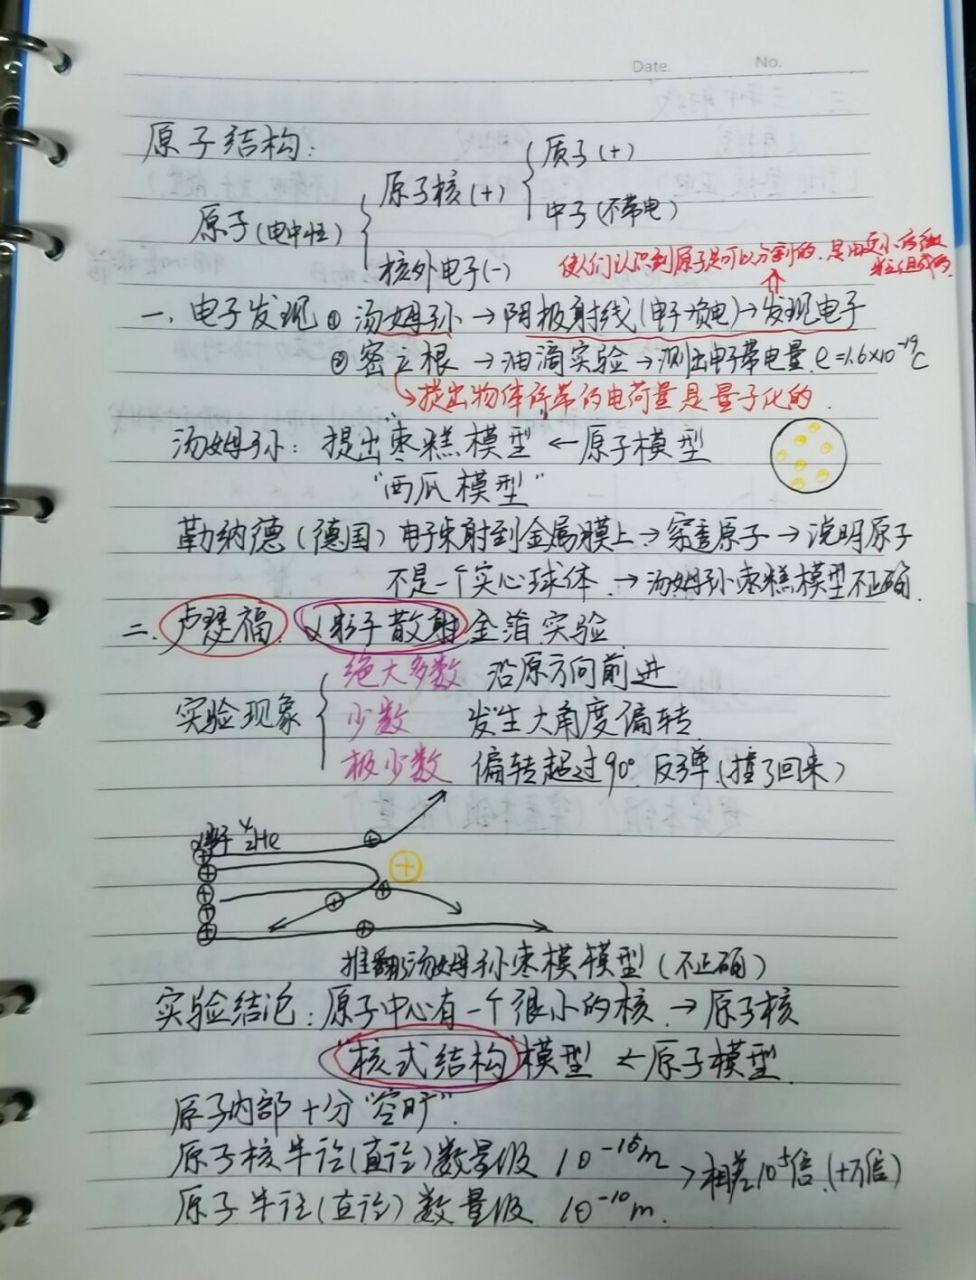 Date. No.
原子结构:
质子(+)
原子核(+)
中子(不带电)
原子(电中性)
核外电子(-)
使人们认识到原子是可以分割的.是由更小的微粒组成的.
一、电子发现 ① 汤姆孙 → 阴极射线(电子 负电) → 发现电子
② 密立根 → 油滴实验 → 测出电子带电量 e=1.6×10⁻¹⁹C
→提出物体所带的电荷量是量子化的.
汤姆孙: 提出枣糕模型 ← 原子模型
"西瓜模型"
勒纳德(德国) 电子束射到金属膜上 → 穿透原子 → 说明原子
不是一个实心球体. → 汤姆孙枣糕模型不正确.
二、卢瑟福. α粒子散射 金箔实验
绝大多数 沿原方向前进
实验现象 少数 发生大角度偏转
极少数 偏转超过90° 反弹.(撞了回来)
α粒子 ⁴₂He
推翻汤姆孙枣模模型(不正确)
实验结论: 原子中心有一个很小的核. → 原子核
"核式结构"模型 ← 原子模型
原子内部十分"空旷".
原子核半径(直径)数量级 10⁻¹⁵m
相差10⁵倍.(十万倍)
原子半径(直径)数量级 10⁻¹⁰m.